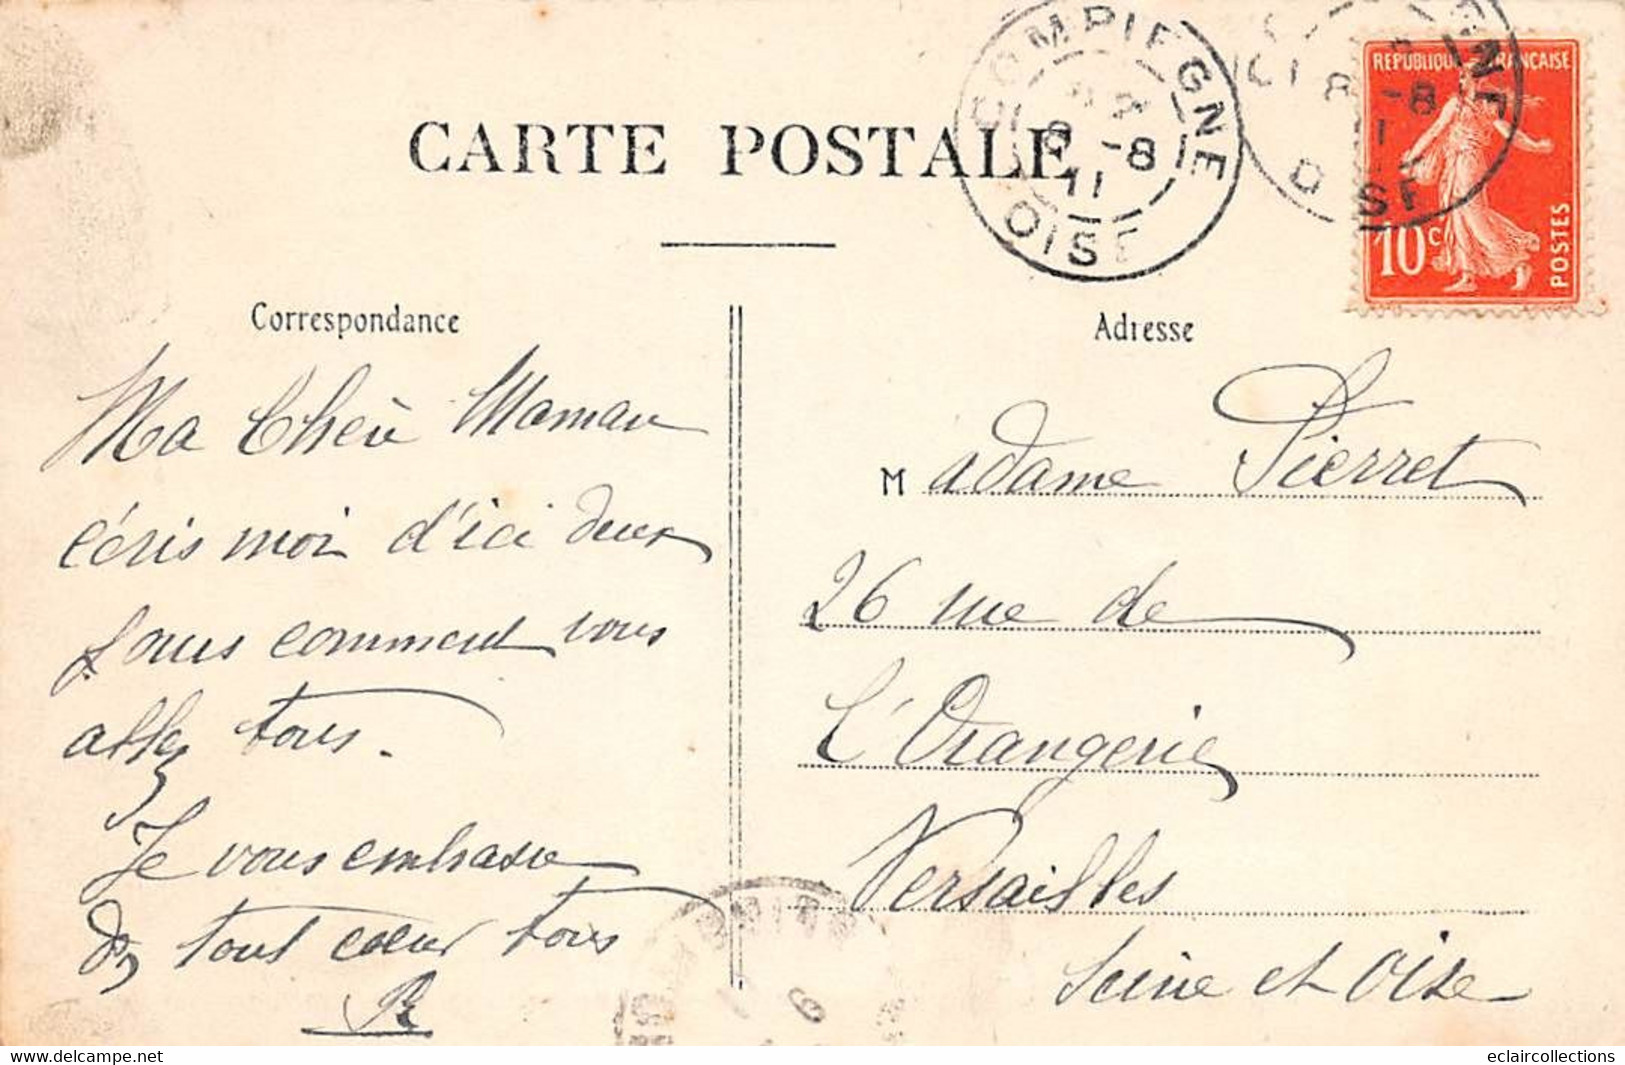 CARTE POSTALE
COMPIEGNE
8 -8
11
OISE
REPUBLIQUE FRANÇAISE
10c
POSTES
Correspondance
Ma Chère Maman
écris moi d'ici deux
jours comment vous
allez tous.
Je vous embrasse
de tout cœur tous
R
Adresse
Madame Pierret
26 rue de
L'Orangerie
Versailles
Seine et Oise
www.delcampe.net
eclaircollections